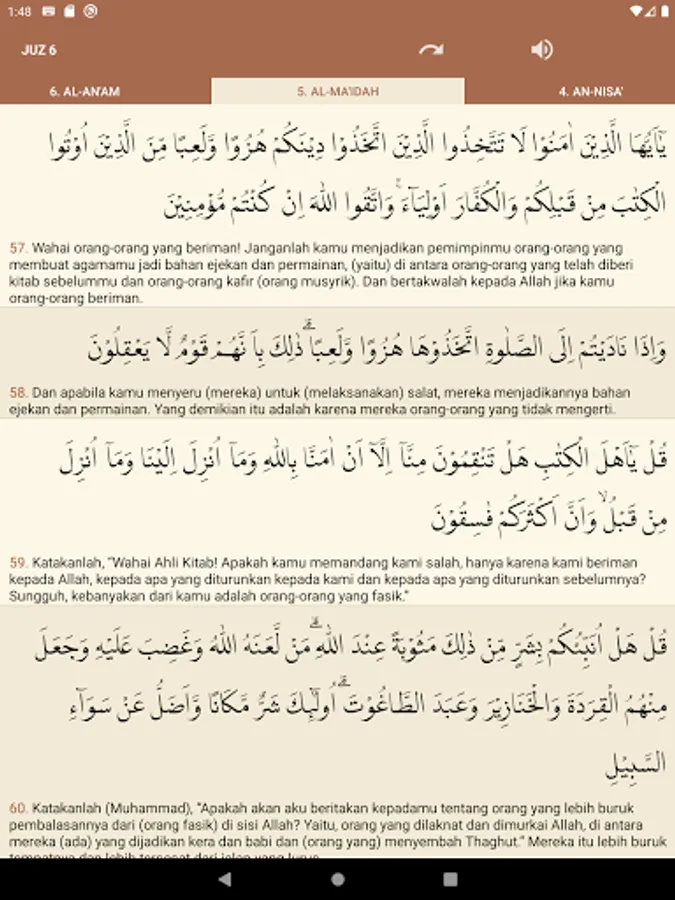 1:48
JUZ 6
6. AL-AN'AM
5. AL-MA'IDAH
4. AN-NISA'
يٰٓاَيُّهَا الَّذِيْنَ اٰمَنُوْا لَا تَتَّخِذُوا الَّذِيْنَ اتَّخَذُوْا دِيْنَكُمْ هُزُوًا وَّلَعِبًا مِّنَ الَّذِيْنَ اُوْتُوا
الْكِتٰبَ مِنْ قَبْلِكُمْ وَالْكُفَّارَ اَوْلِيَاۤءَۚ وَاتَّقُوا اللّٰهَ اِنْ كُنْتُمْ مُّؤْمِنِيْنَ
57. Wahai orang-orang yang beriman! Janganlah kamu menjadikan pemimpinmu orang-orang yang
membuat agamamu jadi bahan ejekan dan permainan, (yaitu) di antara orang-orang yang telah diberi
kitab sebelummu dan orang-orang kafir (orang musyrik). Dan bertakwalah kepada Allah jika kamu
orang-orang beriman.
وَاِذَا نَادَيْتُمْ اِلَى الصَّلٰوةِ اتَّخَذُوْهَا هُزُوًا وَّلَعِبًاۗ ذٰلِكَ بِاَ نَّهُمْ قَوْمٌ لَّا يَعْقِلُوْنَ
58. Dan apabila kamu menyeru (mereka) untuk (melaksanakan) salat, mereka menjadikannya bahan
ejekan dan permainan. Yang demikian itu adalah karena mereka orang-orang yang tidak mengerti.
قُلْ يٰۤاَهْلَ الْكِتٰبِ هَلْ تَنْقِمُوْنَ مِنَّاۤ اِلَّاۤ اَنْ اٰمَنَّا بِاللّٰهِ وَمَاۤ اُنْزِلَ اِلَيْنَا وَمَاۤ اُنْزِلَ
مِنْ قَبْلُۙ وَاَنَّ اَكْثَرَكُمْ فٰسِقُوْنَ
59. Katakanlah, "Wahai Ahli Kitab! Apakah kamu memandang kami salah, hanya karena kami beriman
kepada Allah, kepada apa yang diturunkan kepada kami dan kepada apa yang diturunkan sebelumnya?
Sungguh, kebanyakan dari kamu adalah orang-orang yang fasik."
قُلْ هَلْ اُنَبِّئُكُمْ بِشَرٍّ مِّنْ ذٰلِكَ مَثُوْبَةً عِنْدَ اللّٰهِۗ مَنْ لَّعَنَهُ اللّٰهُ وَغَضِبَ عَلَيْهِ وَجَعَلَ
مِنْهُمُ الْقِرَدَةَ وَالْخَـنَازِيْرَ وَعَبَدَ الطَّاغُوْتَۗ اُولٰٓئِكَ شَرٌّ مَّكَانًا وَّاَضَلُّ عَنْ سَوَآءِ
السَّبِيْلِ
60. Katakanlah (Muhammad), "Apakah akan aku beritakan kepadamu tentang orang yang lebih buruk
pembalasannya dari (orang fasik) di sisi Allah? Yaitu, orang yang dilaknat dan dimurkai Allah, di antara
mereka (ada) yang dijadikan kera dan babi dan (orang yang) menyembah Thaghut." Mereka itu lebih buruk
tempatnya dan lebih tersesat dari jalan yang lurus.